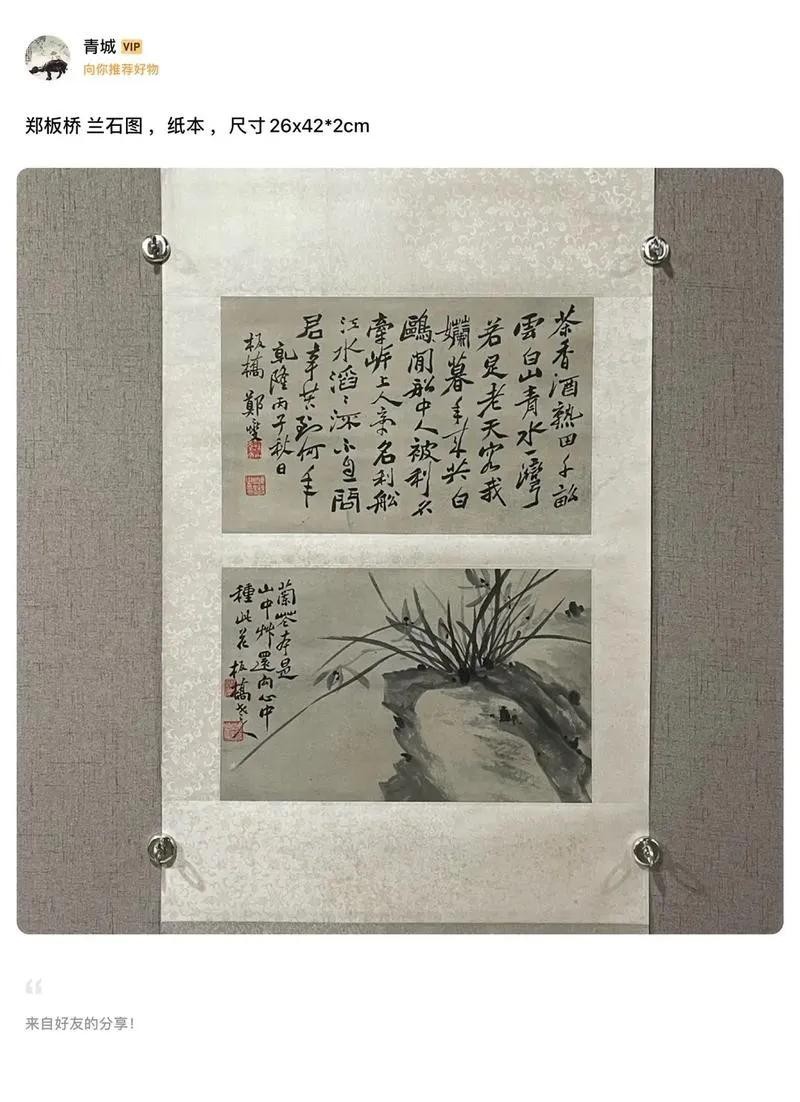 青城 VIP
向你推荐好物
郑板桥 兰石图 ，纸本 ，尺寸26x42*2cm
茶香酒熟田千畝
雲白山青水一灣
若是老天容我
孏暮年來共白
鷗閒船中人被利名
牽岸上人牽名利船
江水滔滔深不息問
君辛苦到何年
乾隆丙子秋日
板橋鄭燮
蘭花本是
山中艸還向心中
種此花
板橋老人
“
来自好友的分享！